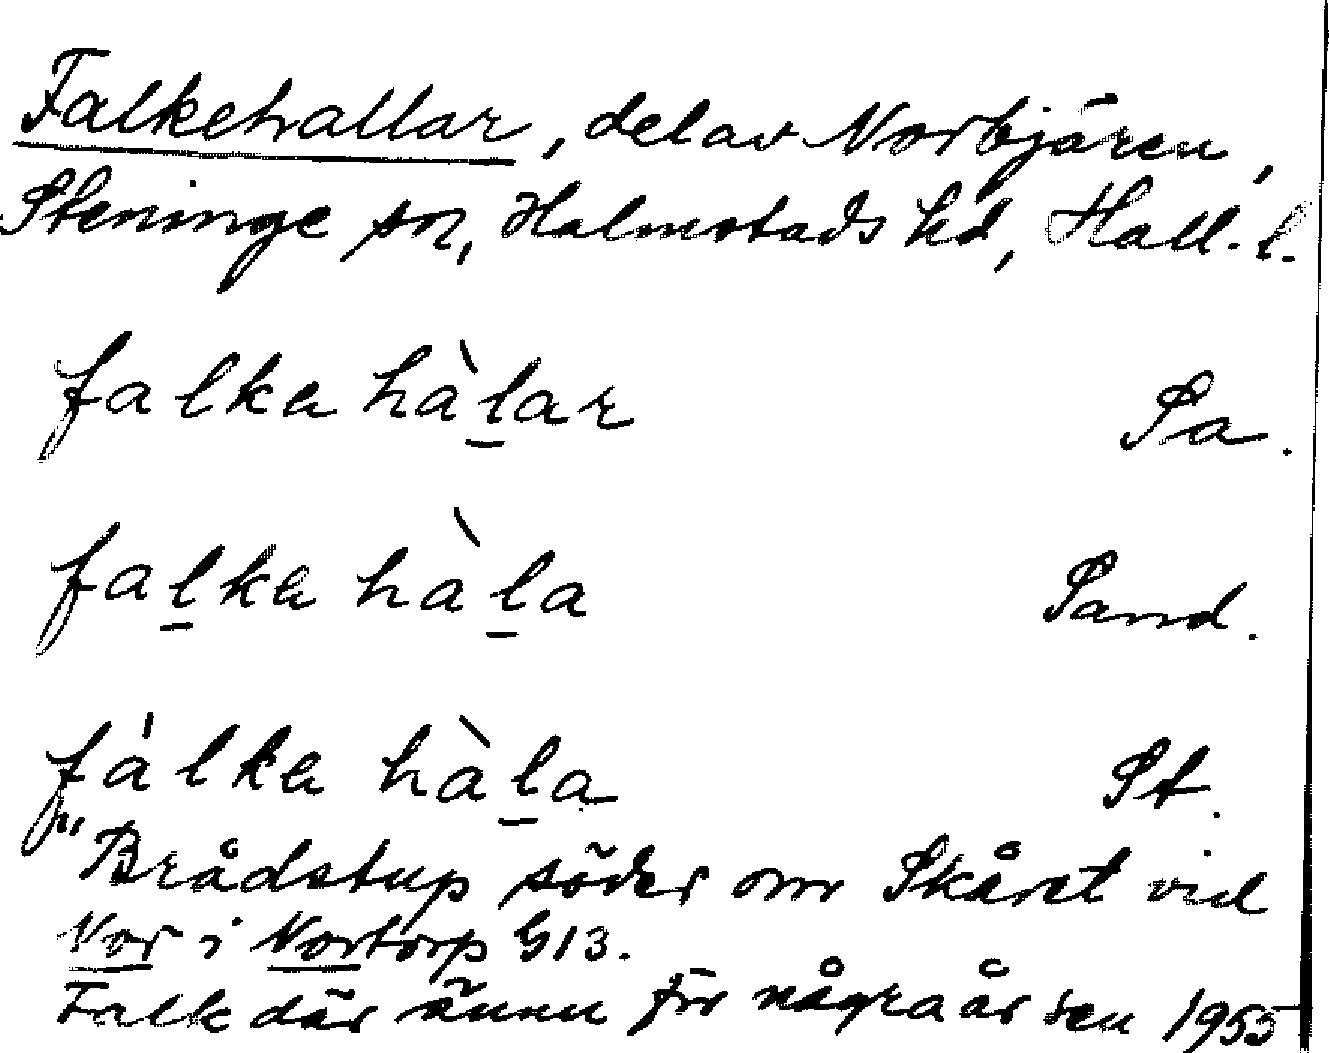 Falkehallar, del av Norbjären,
Steninge sn, Halmstads hd, Hall. l.
falka hàlar Sa.
falka hàla Sand.
fálka hàla St.
"Brådstup söder om Skåret vid
Nor i Nortorp G13.
Falk där ännu för några år sen 1955